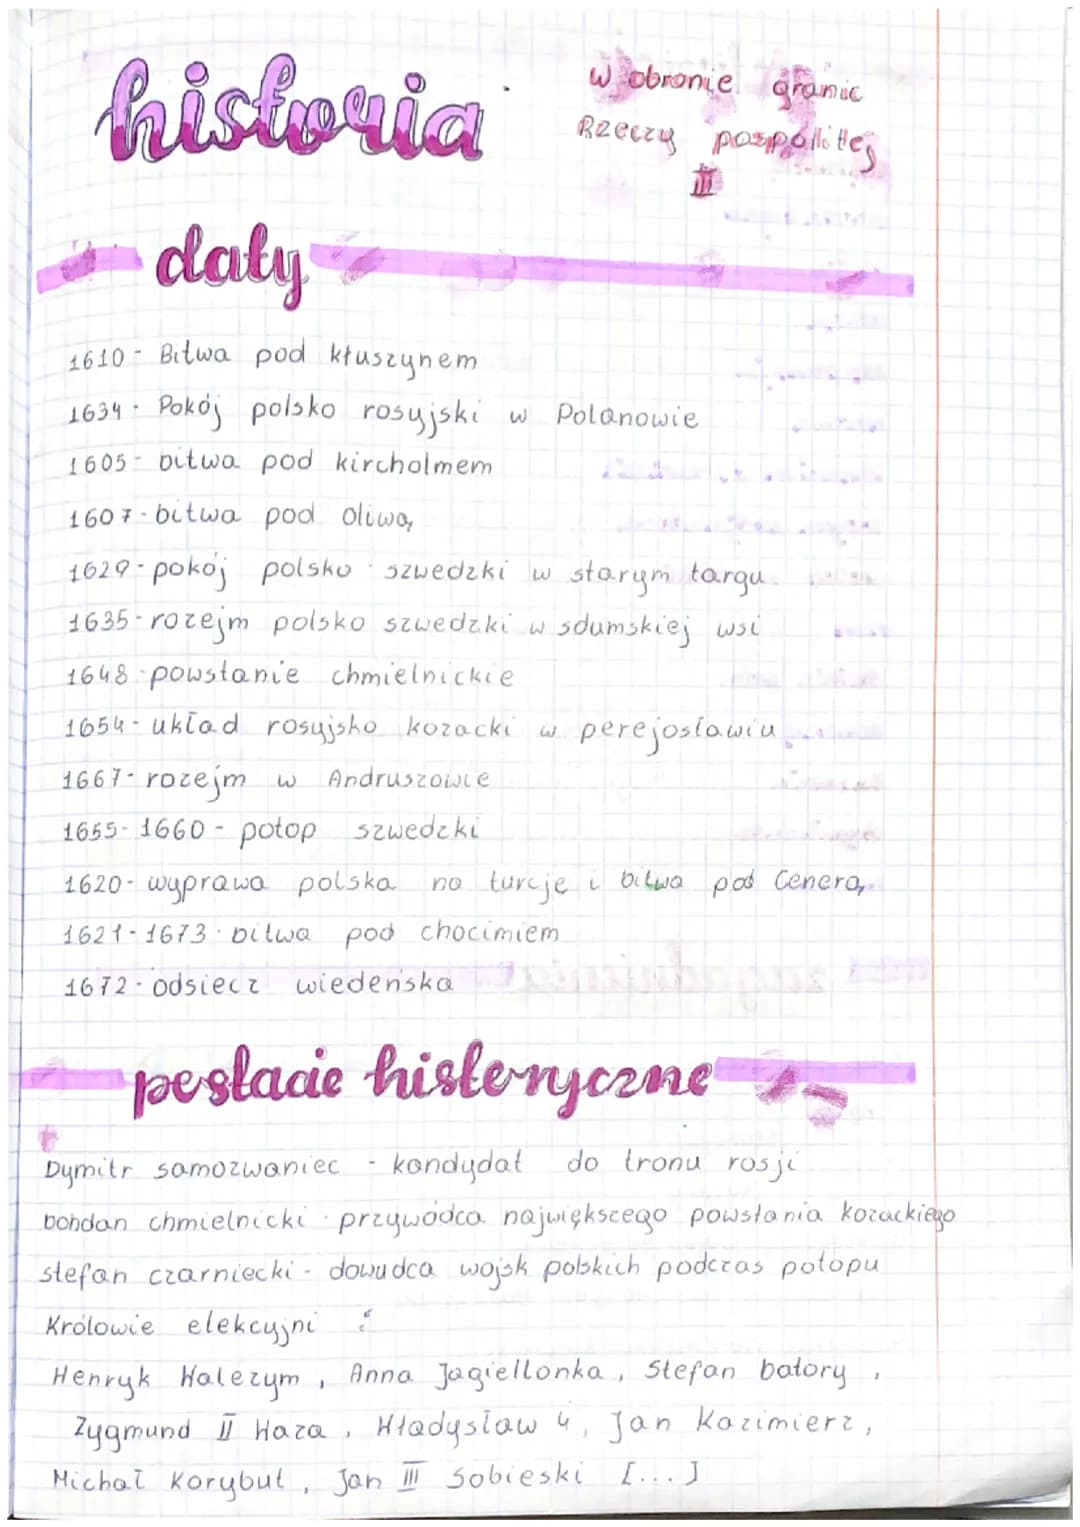 historia
w obronie granic
Rzeczy pospolitej
III
daty
1610 - Bitwa pod kłuszynem
1634 - Pokój polsko rosyjski w Polanowie
1605 - bitwa pod kircholmem
1607 - bitwa pod Oliwą
1629 - pokój polsko szwedzki w starym targu
1635 - rozejm polsko szwedzki w sdumskiej wsi
1648 - powstanie chmielnickie
1654 - układ rosyjsko kozacki w perejosławiu
1667 - rozejm w Andruszowie
1655 - 1660 - potop szwedzki
1620 - wyprawa polska na turcję i bitwa pod Cenerą
1621 - 1673 - bitwa pod chocimiem
1672 - odsiecz wiedeńska
postacie historyczne
Dymitr samozwaniec - kandydat do tronu rosji
bohdan chmielnicki - przywódca największego powstania kozackiego
stefan czarniecki - dowudca wojsk polskich podczas potopu
Królowie elekcyjni :
Henryk Walezym, Anna Jagiellonka, Stefan batory,
Zygmund II Waza, Władysław 4, Jan Kazimierz,
Michał Korybut, Jan III Sobieski [...]